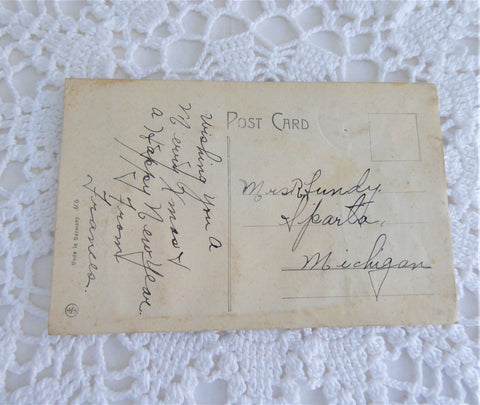 POST CARD
Wishing you a
Merry Xmas &
a Happy New Year.
From
Frances.
Mrs R Lundy
Sparta,
Michigan
Made in Germany